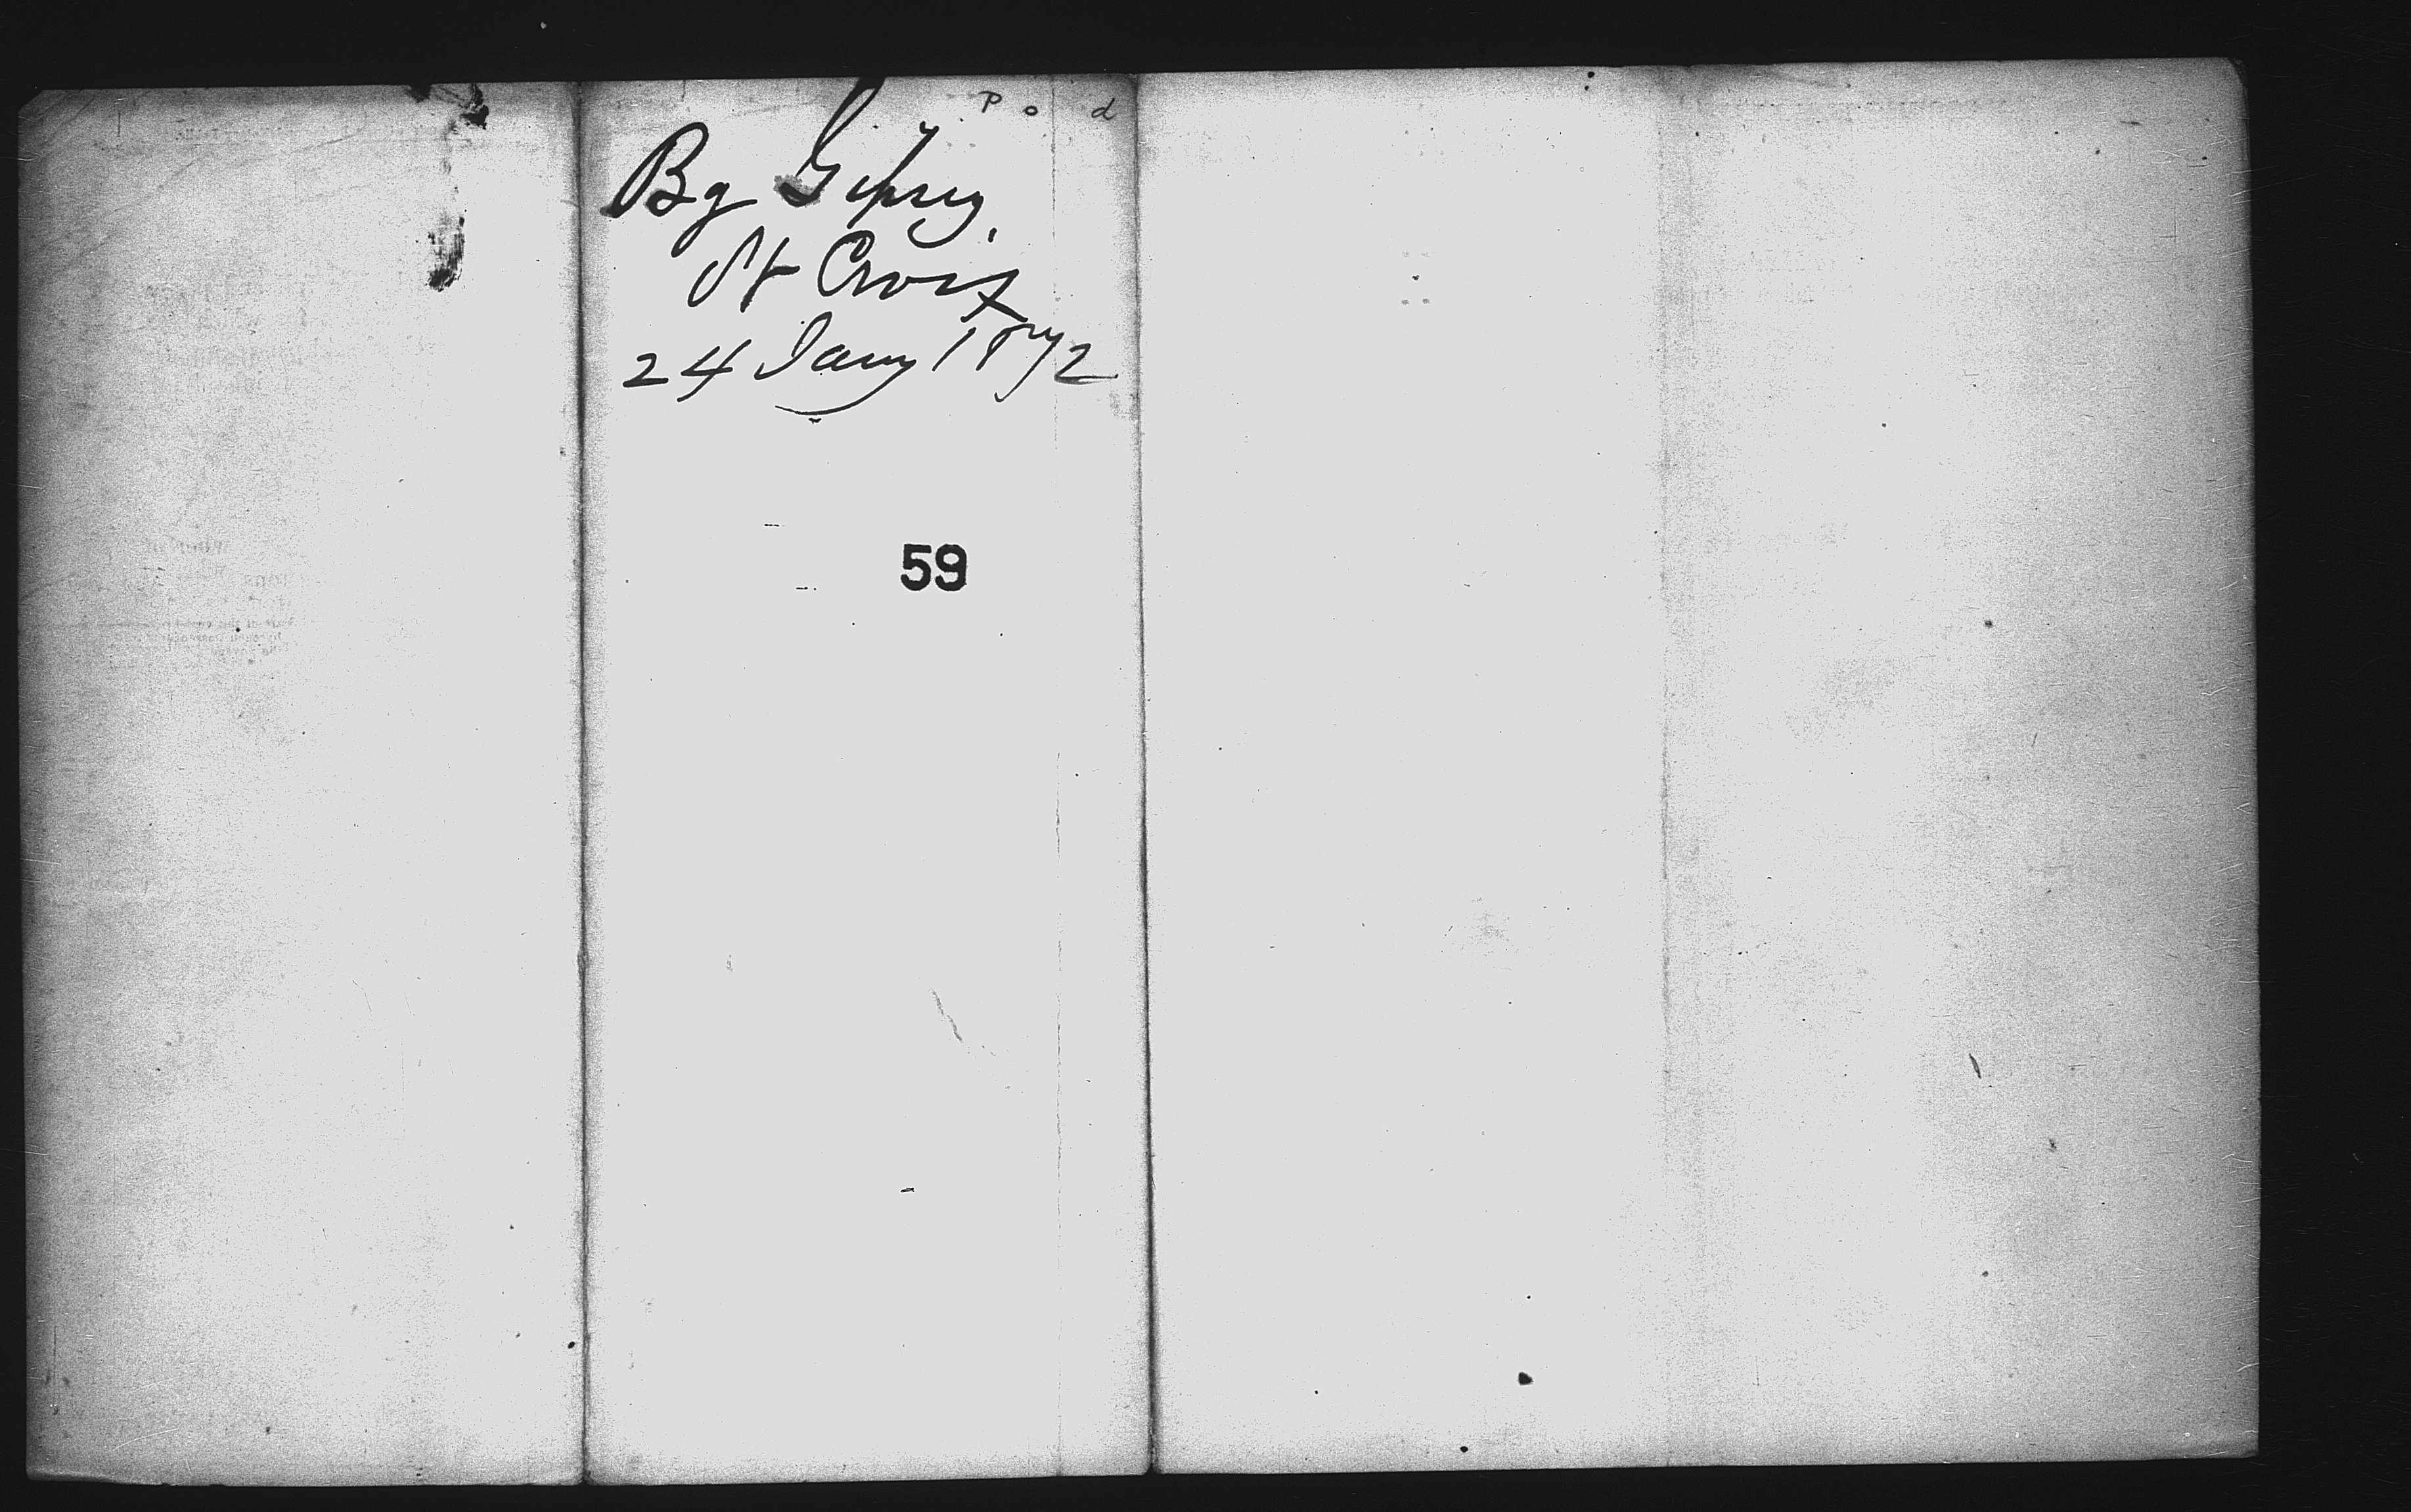 P o d
Bg Gipsey,
St Croix
24 Jany 1872
59